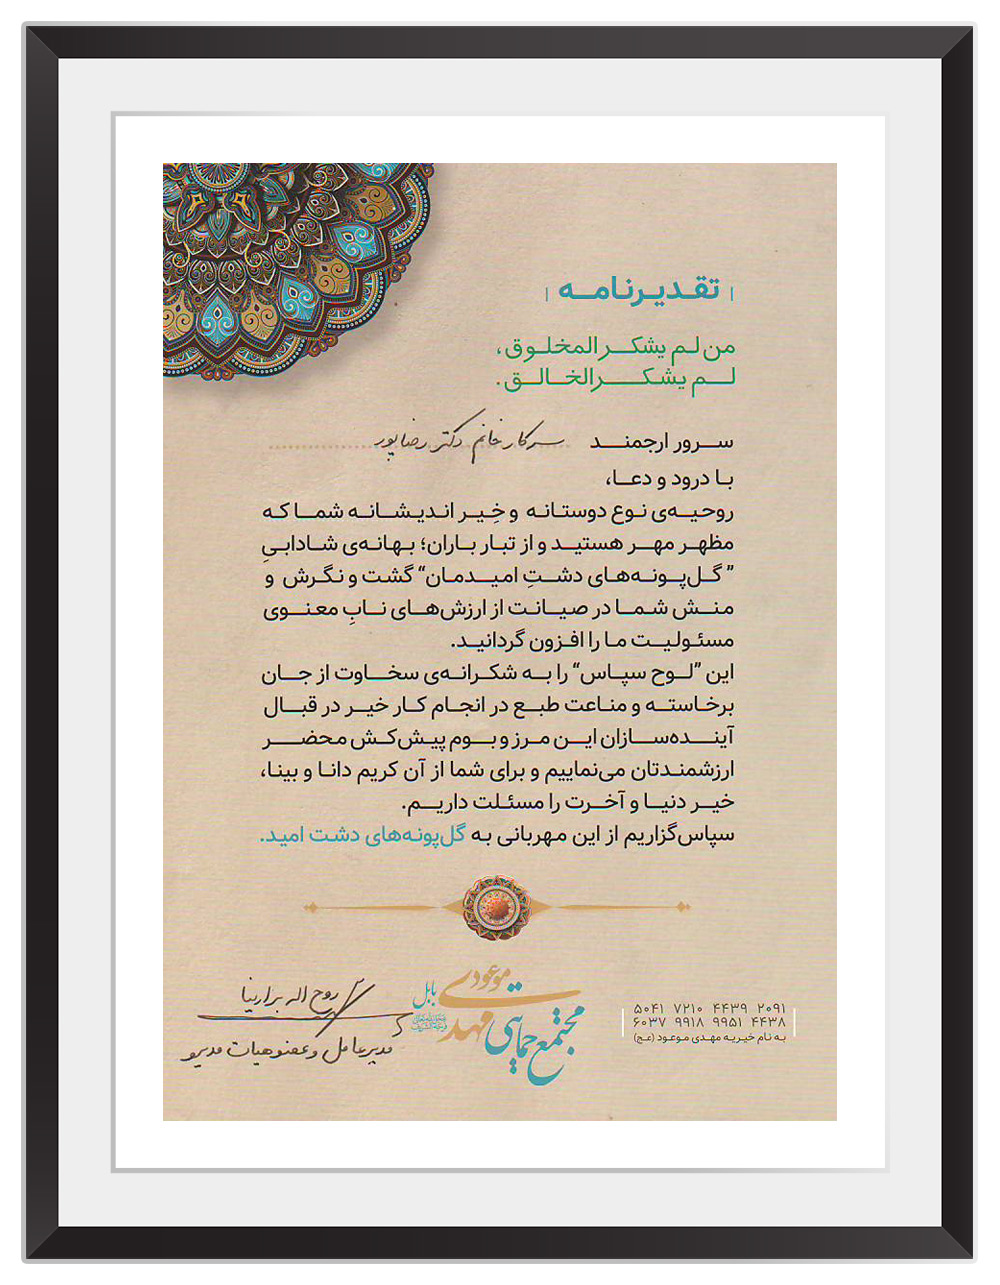 تقدیرنامه
من لم یشکر المخلوق،
لم یشکر الخالق.
سرور ارجمند سرکار خانم دکتر رضاپور
با درود و دعا،
روحیه‌ی نوع دوستانه و خِیر اندیشانه شما که
مظهر مهر هستید و از تبار باران؛ بهانه‌ی شادابیِ
”گل‌پونه‌های دشتِ امیدمان“ گشت و نگرش و
منش شما در صیانت از ارزش‌های نابِ معنوی
مسئولیت ما را افزون گردانید.
این ”لوح سپاس“ را به شکرانه‌ی سخاوت از جان
برخاسته و مناعت طبع در انجام کار خیر در قبال
آینده‌سازان این مرز و بوم پیش‌کش محضر
ارزشمندتان می‌نماییم و برای شما از آن کریم دانا و بینا،
خیر دنیا و آخرت را مسئلت داریم.
سپاس‌گزاریم از این مهربانی به گل‌پونه‌های دشت امید.
مجتمع حمایتی مهدی موعود بابل
۵۰۴۱ ۷۲۱۰ ۴۴۳۹ ۲۰۹۱
۶۰۳۷ ۹۹۱۸ ۹۹۵۱ ۴۴۳۸
به نام خیریه مهدی موعود (عج)
روح اله برارنیا
مدیرعامل و عضو هیات مدیره